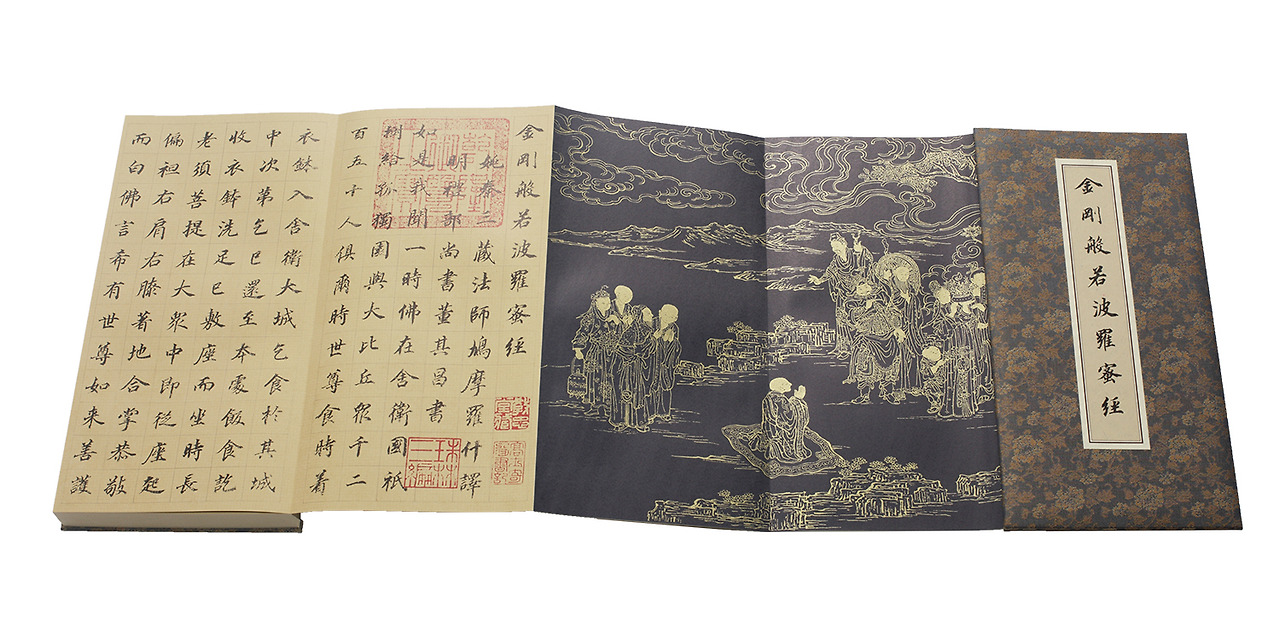 金剛般若波羅蜜經
金剛般若波羅蜜經
姚秦三藏法師鳩摩羅什譯
明禮部尚書董其昌書
如是我聞一時佛在舍衛國祇
樹給孤獨園與大比丘眾千二
百五十人俱爾時世尊食時著
衣鉢入舍衛大城乞食於其城
中次第乞已還至本處飯食訖
收衣鉢洗足已敷座而坐時長
老須菩提在大眾中即從座起
偏袒右肩右膝著地合掌恭敬
而白佛言希有世尊如来善護
珠林三編